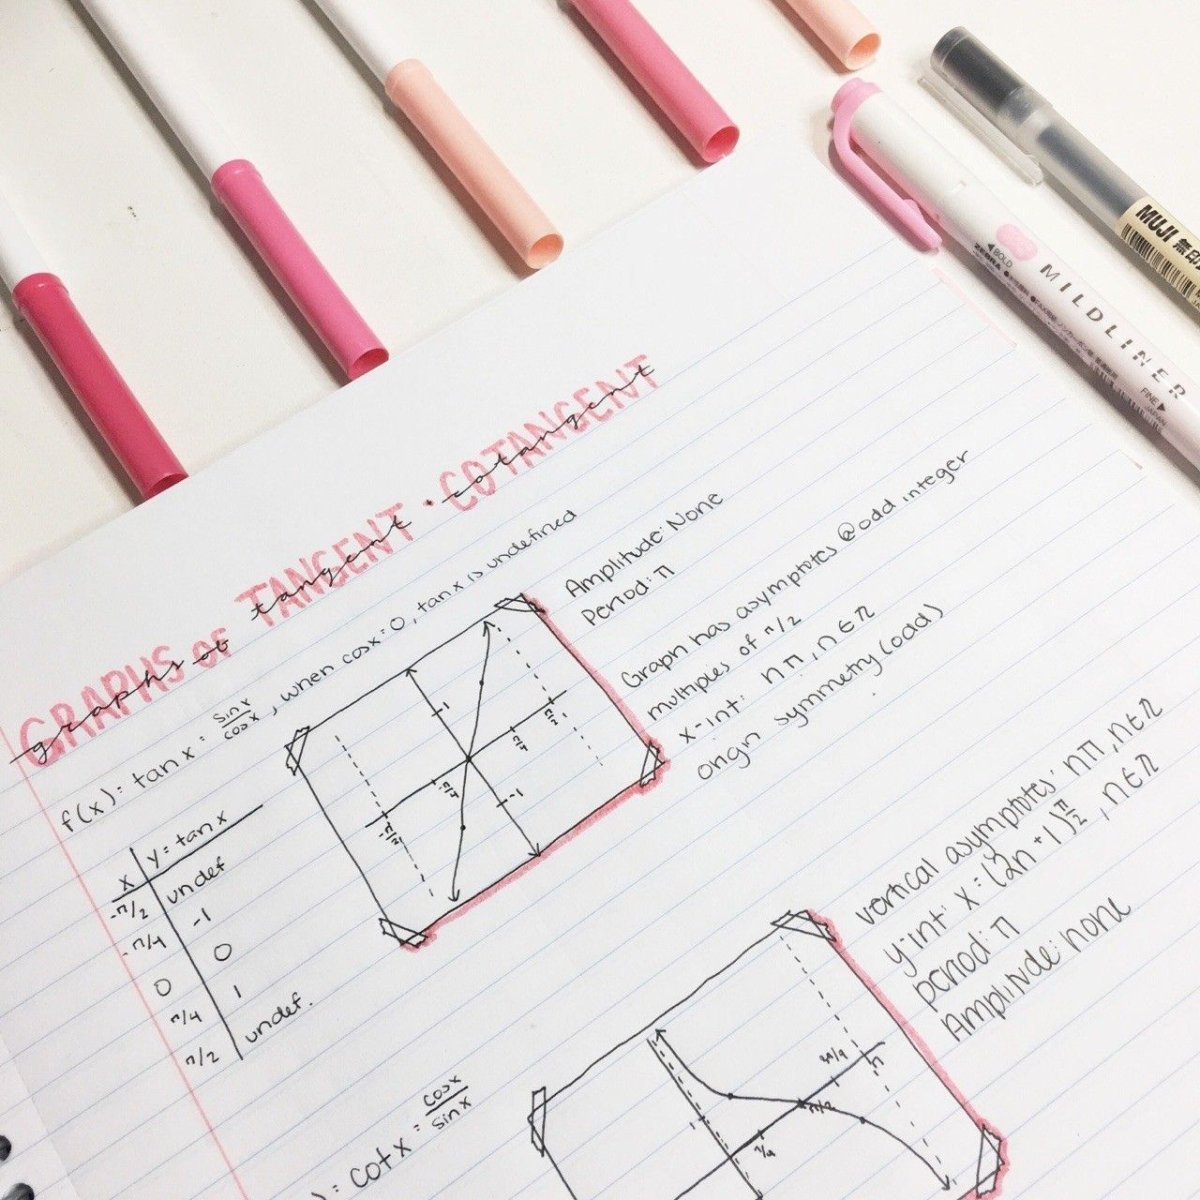 MUJI 無印
◀BOLD
ZEBRA
MILDLINER
FINE▶
JAPAN
GRAPHS OF TANGENT · COTANGENT
graphs of tangent cotangent
f(x) = tan x = sin x / cos x, when cos x = 0, tan x is undefined
x y = tan x
-π/2 undef
-π/4 -1
0 0
π/4 1
π/2 undef.
1
-1
-π/2
-π/4
π/4
π/2
Amplitude: None
Period: π
Graph has asymptotes @ odd integer
multiples of π/2
x-int: nπ, n ∈ ℤ
origin symmetry (odd)
) = cot x = cos x / sin x
π/4
π/2
3π/4
π
vertical asymptotes: nπ, n ∈ ℤ
y-int: x = (2n + 1) π/2, n ∈ ℤ
period: π
Amplitude: none